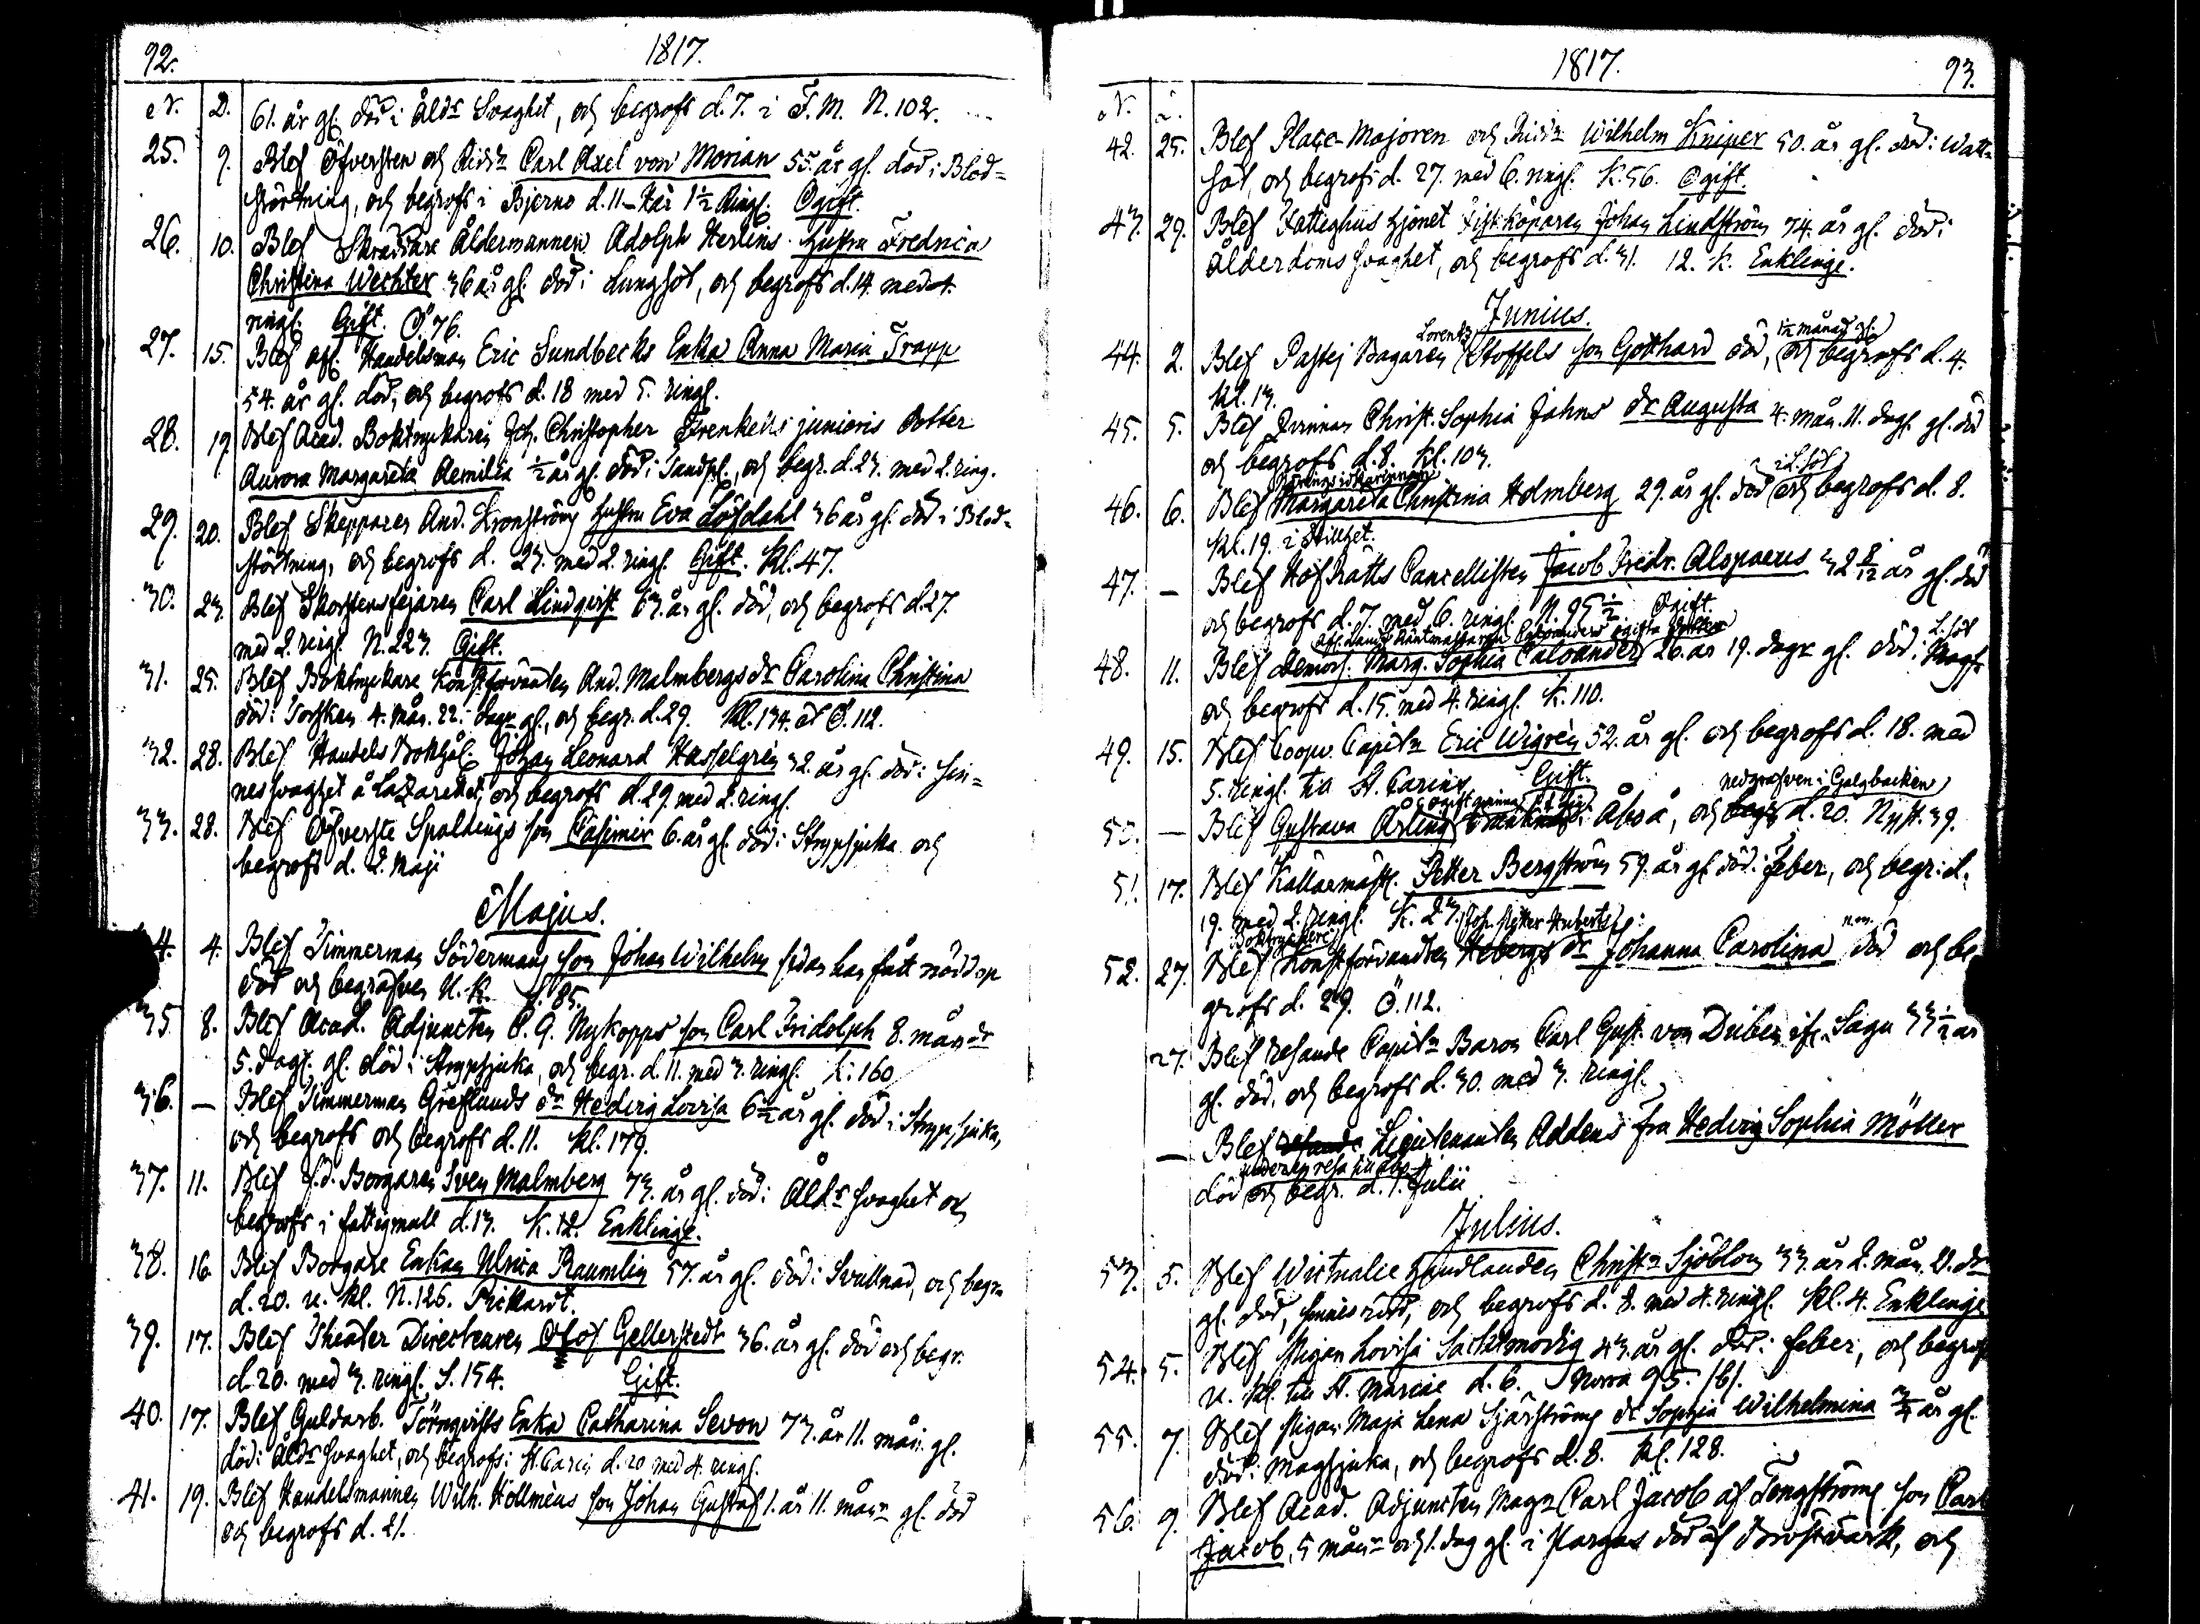 92.
1817.
N. D. 61. år gl. död i Ålds Svaghet, och begrofs d. 7. i F. M. N. 102.
25. 9. Blef Öfversten och Ridd. Carl Axel von Morian 55. år gl. död i Blod=
störtning, och begrofs i Bjerno d. 11 – här 1½ Ringl. Ogift.
26. 10. Blef Skräddare Åldermannen Adolph Herlins hustru Fredrica
Christina Wechter 36 år gl. död i Lungsot, och begrofs d. 14. med 4.
ringl. Gift. Ö. 76.
27. 15. Blef afl. Handelsman Eric Sundbecks Enka Anna Maria Trapp
54. år gl. död, och begrofs d. 18 med 5. ringl.
28. 19. Blef Acad. Boktryckaren Joh. Christopher Frenkells junioris dotter
Aurora Margareta Aemilia ½ år gl. död i , och begr. d. 23. med 2. ring.
29. 20. Blef Skepparen And. Kronström hustru Eva Löfdahl 36 år gl. död i Blod=
störtning, och begrofs d. 23. med 2. ringl. Gift. Kl. 47.
30. 23. Blef Skorstensfejaren Carl Lindqvist 63. år gl. död, och begrofs d. 27.
med 2. ringl. N. 223. Gift.
31. 25. Blef Boktryckare Konstförvanten And. Malmbergs dr Carolina Christina
död i Torsken 4. mån. 22. dagr gl., och begr. d. 29. Kl. 134. Ö. 112.
32. 28. Blef Handels Bokhål. Johan Leonard Hasselgren 32. år gl. död i Sin=
nessvaghet å Lazarettet, och begrofs d. 29. med 2. ringl.
33. 28. Blef Öfverste Spaldings son Casimir 6. år gl. död i Strypsjuka och
begrofs d. 2. Maji
Majus.
4. 4. Blef Timmerman Södermans son Johan Wilhelm sedan han fått nöddop
död och begrafven U. K. 85.
35. 8. Blef Acad. Adjuncten C. G. Nykopps son Carl Fridolph 8. månr
5. dagr. gl. död i Strypsjuka, och begr. d. 11. med 3. ringl. K. 160
36. — Blef Timmerman Greflunds dr Hedvig Lovisa 6½ år gl. död i Strypsjuka,
och begrofs och begrofs d. 11. Kl. 179.
37. 11. Blef f.d. Borgaren Sven Malmberg 73. år gl. död i Ålds svaghet och
begrofs i fattigmull d. 13. K. 12. Enklinge.
38. 16. Blef Borgare Enkan Ulrica Raumlin 57. år gl. död i Svullnad, och begr
d. 20. u. kl. N. 126.
39. 17. Blef Theater Directeuren Olof Gellerstedt 36. år gl. död och begr.
d. 20. med 3. ringl. S. 154. Gift.
40. 17. Blef Guldarb. Törnqvists Enka Catharina Sevon 73. år 11. mån. gl.
död i Ålds svaghet, och begrofs i St. Carin d. 20 med 4. ringl.
41. 19. Blef Handelsmannen Wilh. Höllméns son Johan Gustaf 1. år 11. mån gl. död
och begrofs d. 21.
1817.
93.
N.
42. 25. Blef Place-Majoren och Ridd. Wilhelm Kniper 50. år gl. död i Watt=
sot, och begrofs d. 27. med 6. ringl. K. 56. Ogift.
43. 29. Blef Fattighus hjonet Fiskköparen Johan Lindström 74. år gl. död i
Ålderdoms svaghet, och begrofs d. 31. 12. K. Enklinge.
Junius.
Lorentz ½ månad gl.
44. 2. Blef Pastej Bagaren Stoffels son Gotthard död, och begrofs d. 4.
Kl. 13.
45. 5. Blef Qvinnan Christ. Sophia Jahns dr Augusta 4. mån. 11. dag. gl. död
och begrofs d. 8. Kl. 103.
i L. sot
46. 6. Blef Margareta Christina Holmberg 29. år gl. död och begrofs d. 8.
Kl. 19. i stillhet.
47. — Blef Hof Rätts Cancellisten Jacob Fredr. Alopaeus 32 8/12 år gl. död
och begrofs d. 7. med 6. ringl. N. 95½ Ogift.
L. sot
48. 11. Blef Demois. Marg. Sophia Caloander 26. år 19. dagr gl. död i
och begrofs d. 15. med 4. ringl. K. 110.
49. 15. Blef Coopv. Capitn Eric Wigrén 52. år gl. och begrofs d. 18. med
5. ringl. til St. Carins Gift.
nedgrafven i Galgbacken
50. — Blef Gustava Årling i Åbo å, och d. 20. Nyst. 39.
51. 17. Blef Källarmäst. Petter Bergström 59. år gl. död i feber, och begr. d.
19. med 2. ringl. K. 23.
Boktryckeri Joh. Petter
52. 27. Blef Konstförvandten dr Johanna Carolina död och be=
grofs d. 29. Ö. 112.
27. Blef resande Capitn Baron Carl Gust. von Düben ifr. Sagu 33½ år
gl. död, och begrofs d. 30. med 3. ringl.
— Blef Lieutenanten Addens fru Hedvig Sophia Möller
under resa
död och begr. d. 1. Julii
Julius.
53. 5. Blef Victualie handlanden Christn Sjöblom 33. år 2. mån. 2. dr
gl. död, sinnes rubb, och begrofs d. 8. med 4. ringl. Kl. 4. Enklinge
54. 5. Blef Pigan Lovisa Sacktmodig 43. år gl. död i feber, och begrofs
u. kl. til St. Mariae d. 6. Norra 95. 161.
55. 7. Blef Pigan Maja Lena Sjöström dr Sophia Wilhelmina ¾ år gl.
död i Magsjuka, och begrofs d. 8. Kl. 128.
56. 9. Blef Acad. Adjuncten Magr Carl Jacob af Tengström son Carl
Jacob, 5 månr och 1. dag gl. i Pargas död af Bröstvärk, och